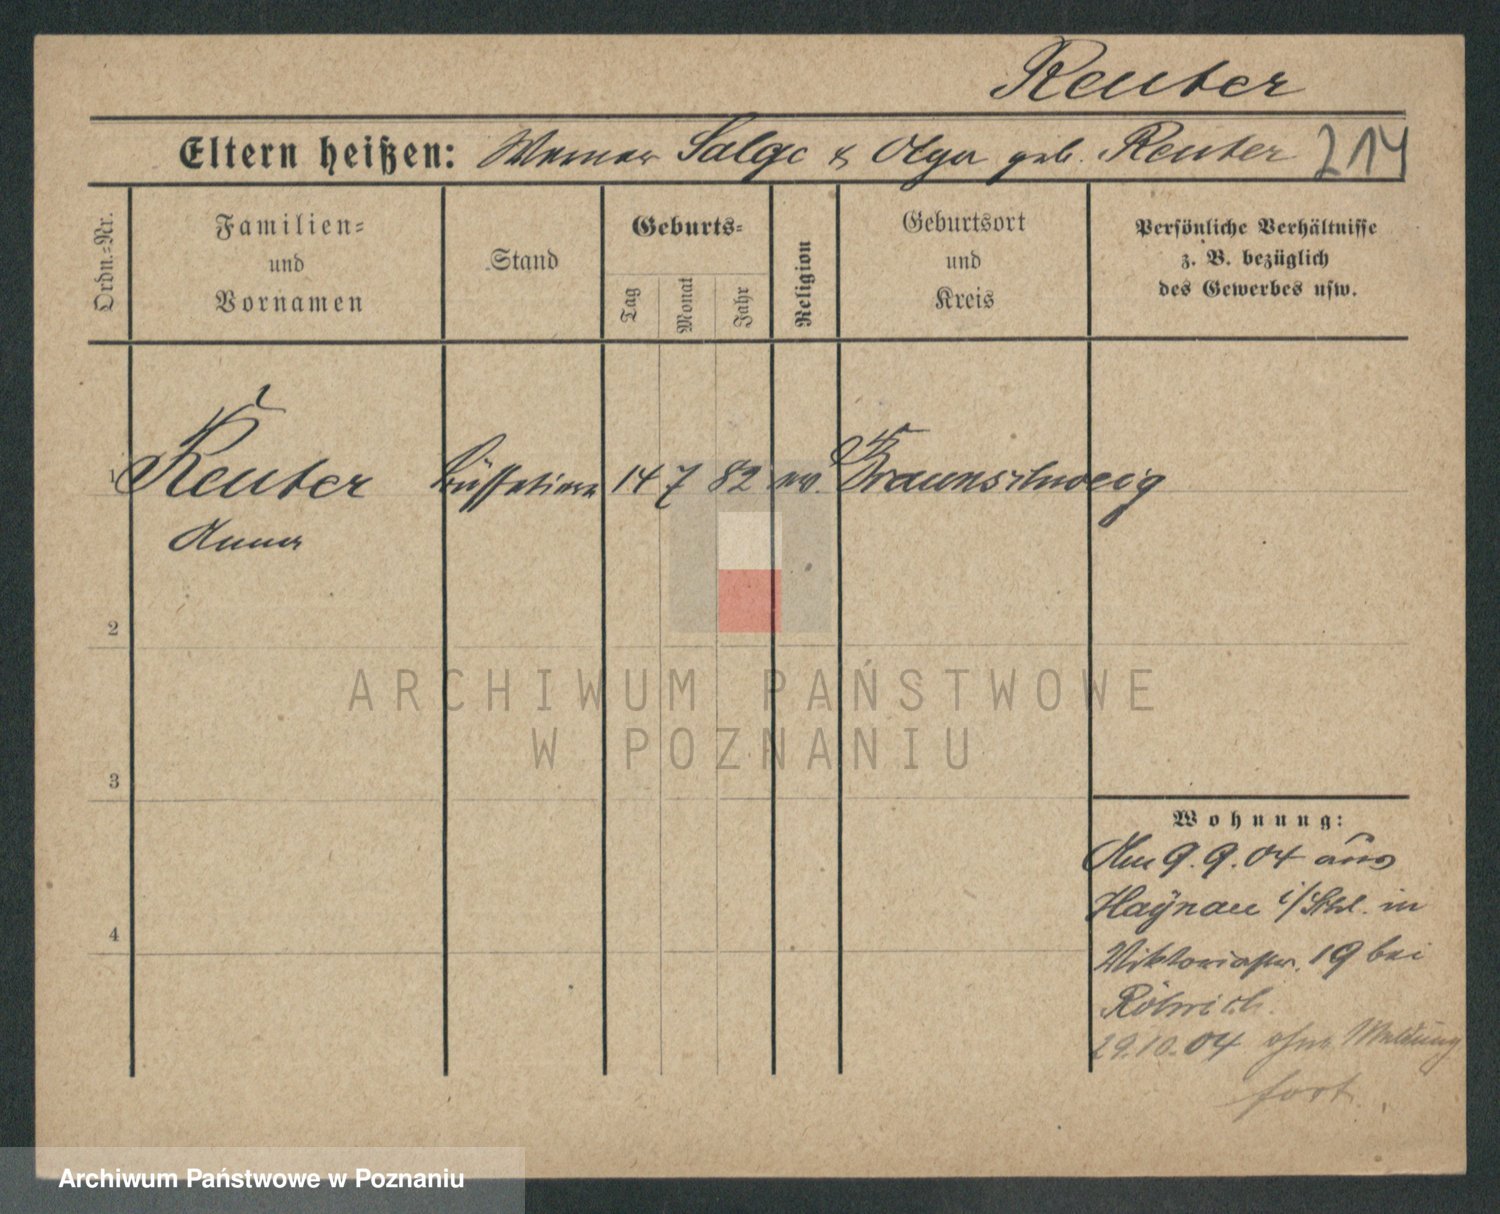 Reuter
Eltern heißen: Werner Salge & Olga geb. Reuter 214
Ordn.-Nr.
Familien-
und
Vornamen
Stand
Geburts-
Tag
Monat
Jahr
Religion
Geburtsort
und
Kreis
Persönliche Verhältnisse
z. B. bezüglich
des Gewerbes usw.
1 Reuter Büffetiere 14 7 82 ev. Braunschweig
Anna
2
3
4
Wohnung:
Am 9.9.04 aus
Haynau i/Schl. in
Viktoriastr. 19 bei
Röhrich.
29.10.04 ohne Meldung
fort.
ARCHIWUM PAŃSTWOWE
W POZNANIU
Archiwum Państwowe w Poznaniu